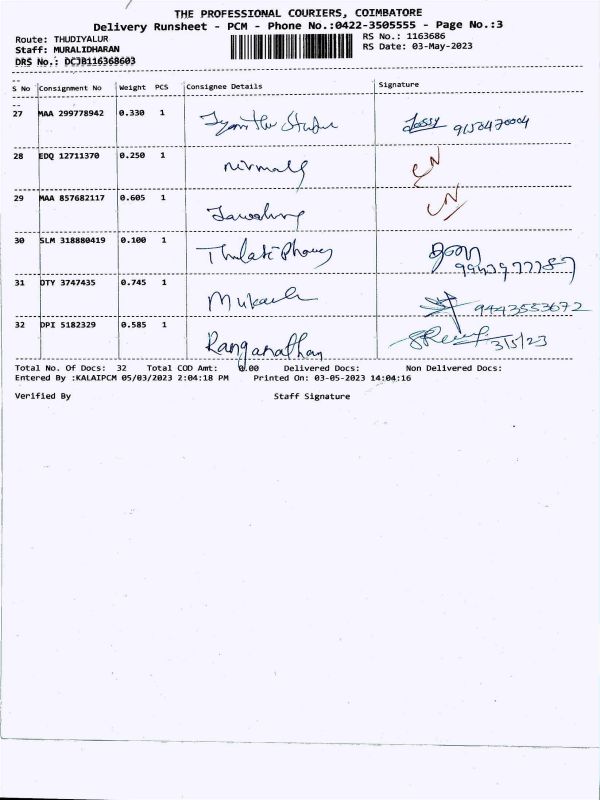 THE PROFESSIONAL COURIERS, COIMBATORE
Delivery Runsheet - PCM - Phone No.:0422-3505555 - Page No.:3
Route: THUDIYALUR RS No.: 1163686
Staff: MURALIDHARAN RS Date: 03-May-2023
DRS No.: DCJB116368603
S No Consignment No Weight PCS Consignee Details Signature
27 MAA 299778942 0.330 1
28 EDQ 12711370 0.250 1 Nirmala
29 MAA 857682117 0.605 1
30 SLM 318880419 0.100 1
31 OTY 3747435 0.745 1 9443553672
32 DPI 5182329 0.585 1 Ranganathan 3/5/23
Total No. Of Docs: 32 Total COD Amt: 0.00 Delivered Docs: Non Delivered Docs:
Entered By :KALAIPCM 05/03/2023 2:04:18 PM Printed On: 03-05-2023 14:04:16
Verified By Staff Signature